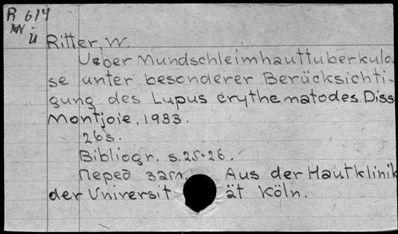 R 614
Ritter, W.
Ueber Mundschleimhauttuberkulo-
se unter besonderer Berücksichti-
gung des Lupus erythematodes. Diss
Montjoie, 1933.
26s.
Bibliogr. s. 25-26.
Перед загл. Aus der Hautklinik
der Universität Köln.